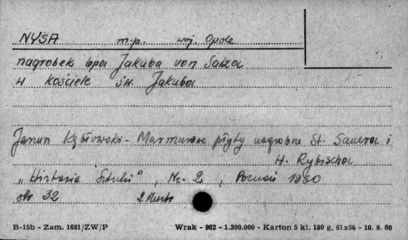 NYSA m.p. woj. Opole
nagrobek bpa Jakuba von Salza
w kościele św. Jakuba
Janun Kębłowski - Marmurowe płyty nagrobne St. Sauera i
H. Rybischa
„Historia Sztuki", No. 2, Poznań 1980
str 32
B-15b - Zam. 1681/ZW/P Wrak - 962 - 1.300.000 - Karton 5 kl. 180 g, 61x86 - 10. 9. 60